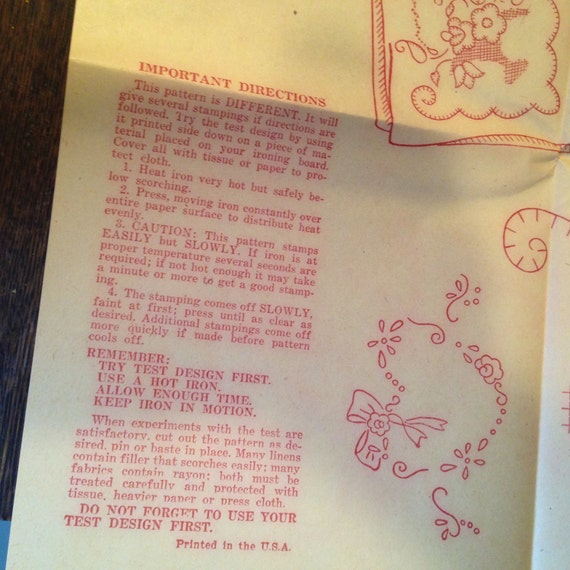 IMPORTANT DIRECTIONS
This pattern is DIFFERENT. It will
give several stampings if directions are
followed. Try the test design by using
it printed side down on a piece of ma-
terial placed on your ironing board.
Cover all with tissue or paper to pro-
tect cloth.
1. Heat iron very hot but safely be-
low scorching.
2. Press, moving iron constantly over
entire paper surface to distribute heat
evenly.
3. CAUTION: This pattern stamps
EASILY but SLOWLY. If iron is at
proper temperature several seconds are
required; if not hot enough it may take
a minute or more to get a good stamp-
ing.
4. The stamping comes off SLOWLY,
faint at first; press until as clear as
desired. Additional stampings come off
more quickly if made before pattern
cools off.
REMEMBER:
TRY TEST DESIGN FIRST.
USE A HOT IRON.
ALLOW ENOUGH TIME.
KEEP IRON IN MOTION.
When experiments with the test are
satisfactory, cut out the pattern as de-
sired, pin or baste in place. Many linens
contain filler that scorches easily; many
fabrics contain rayon; both must be
treated carefully and protected with
tissue, heavier paper or press cloth.
DO NOT FORGET TO USE YOUR
TEST DESIGN FIRST.
Printed in the U.S.A.